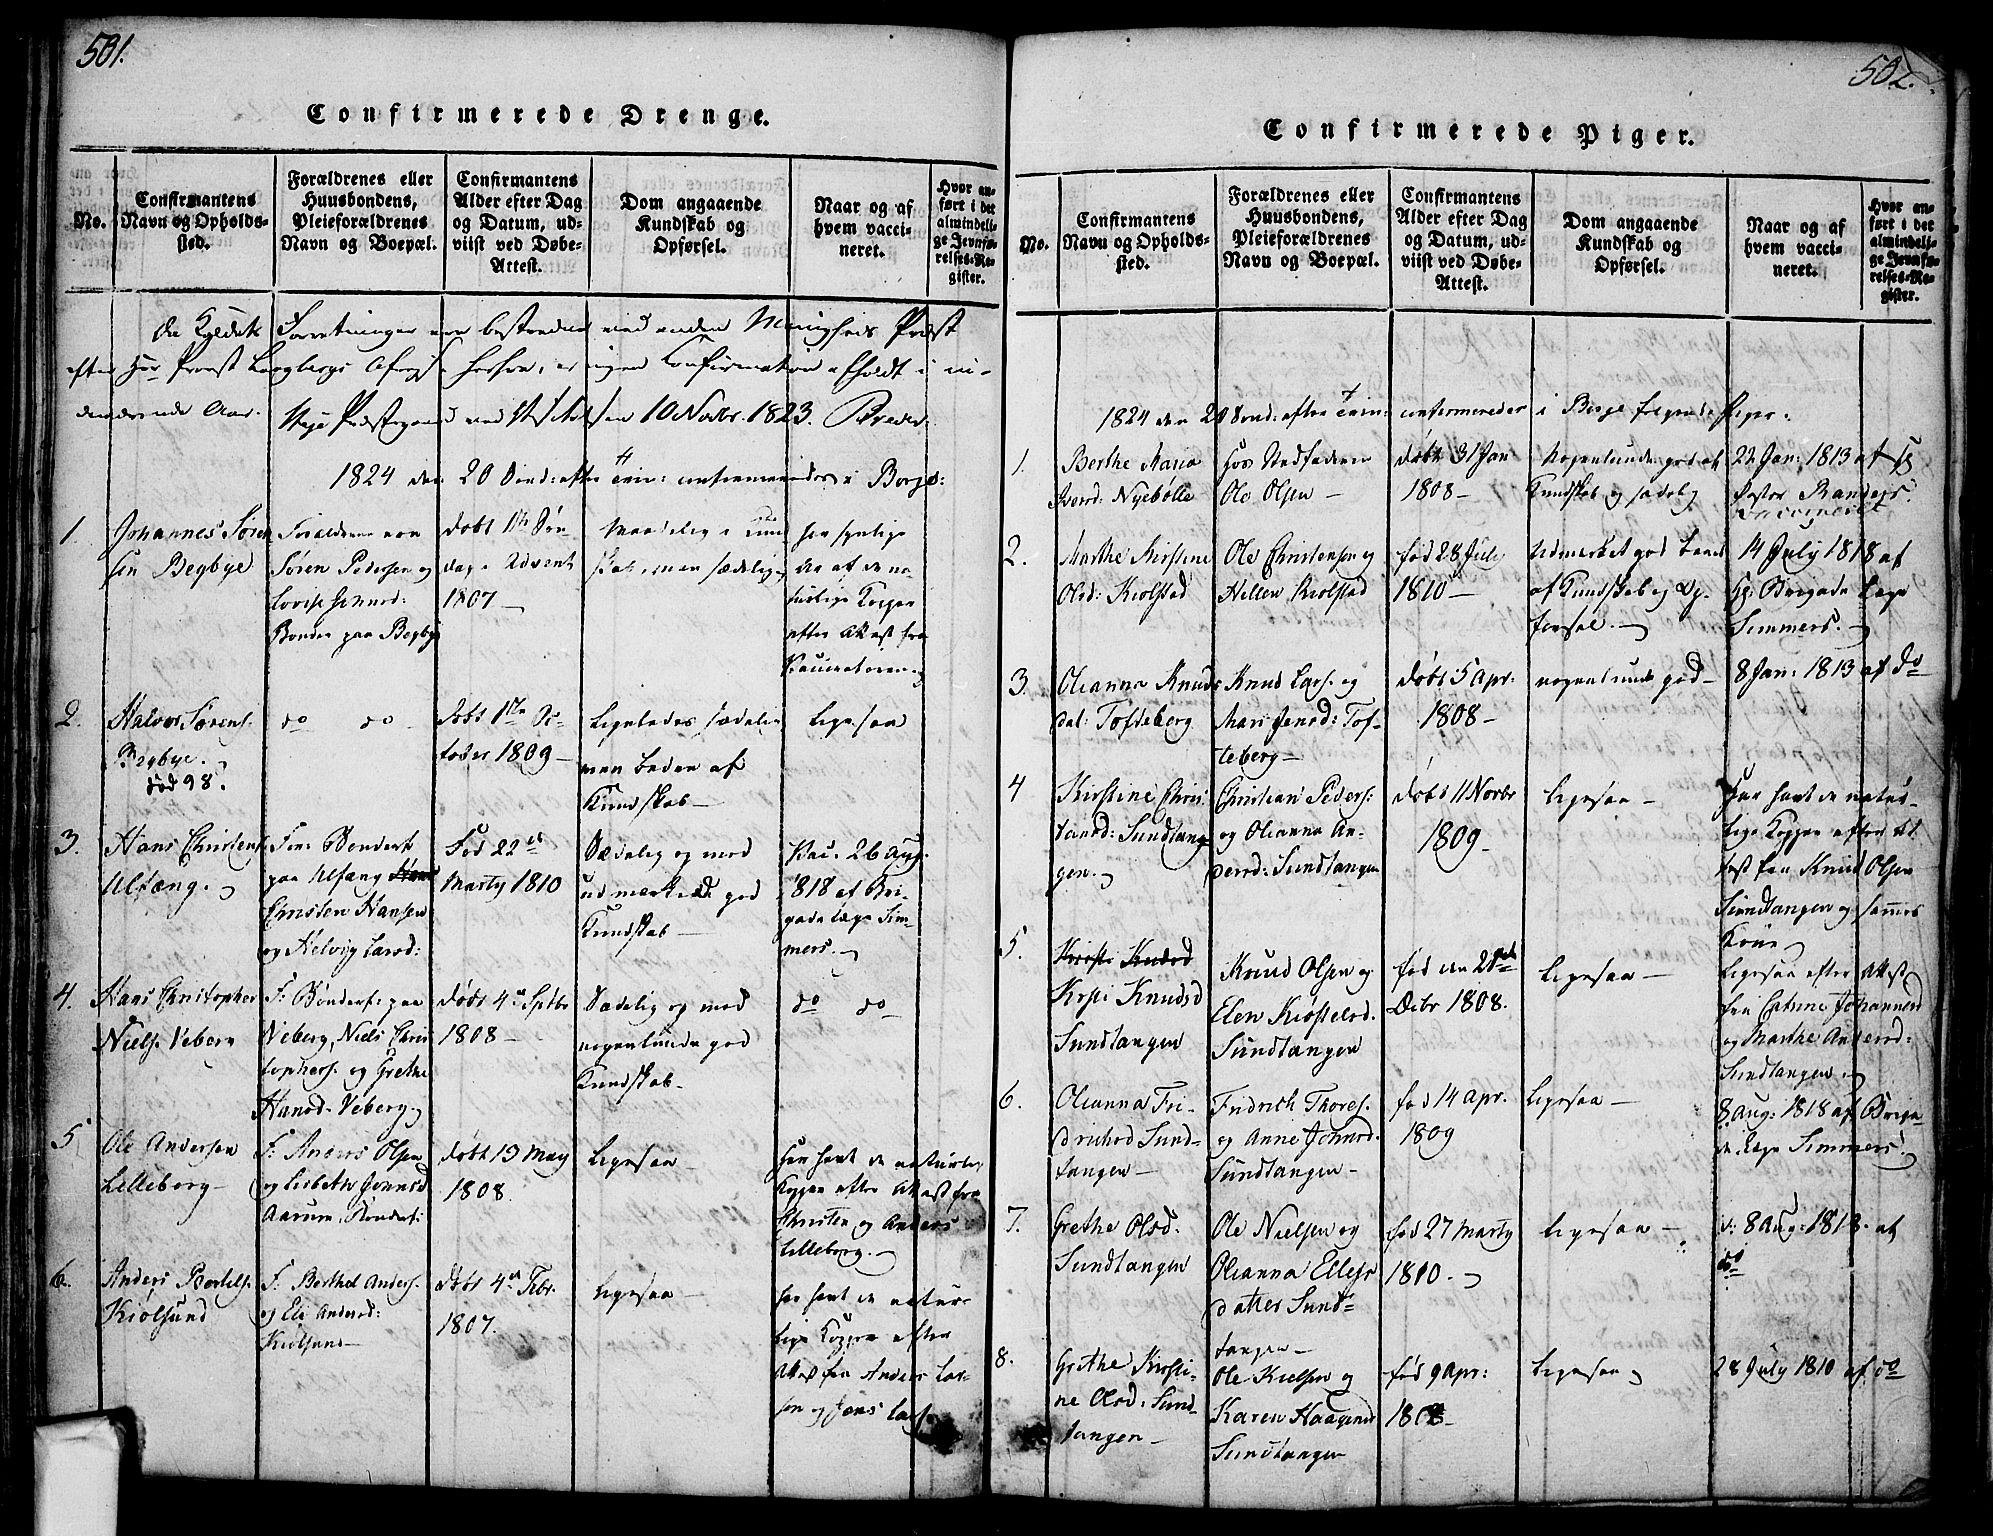 501.
Confirmerede Drenge.
No.
Confirmantens
Navn og Opholds-
sted.
Forældrenes eller
Huusbondens,
Pleieforældrenes
Navn og Boepæl.
Confirmantens
Alder efter Dag
og Datum, ud-
viist ved Døbe-
Attest.
Dom angaaende
Kundskab og
Opførsel.
Naar og af
hvem vacci-
neret.
Hvor an-
ført i det
almindeli-
ge Jevnfø-
relses-Re-
gister.
Forretninger bestredne
efter Hr Provst
Confirmation afholdt i in-
deværende Aar.
10 Novbr. 1823.
1824 den 20 Sønd: efter Trin: confirmerede i Borge:
1.
Johannes Søren
sen Begbye
Forældrene ere
Søren Pedersen og
Bønder paa Begbye
døbt 1ste Søn
dag i Advent
1807
maadelig i Kund
skab, men sædelig
har synlige
Ar af de na-
turlige Kopper
efter Attest fra
Vaccinatoren
2.
Halvor Sørens.
Begbye.
død 98.
do do
døbt 1ste Oc-
tober 1809
Ligeledes sædelig
men bedre af
Kundskab
Ligesaa
3.
Hans Christens
Ulfæng.
For: Bønderf.
paa Ulfæng
Christen Hansen
og Helvig Larsd:
Fød 22de
Marty 1810
Sædelig og med
udmærked god
Kundskab
Vac. 26 Aug.
1818 af Bri-
gadelæge Sim-
mers.
4.
Hans Christopher
Niels. Veberg
F: Bønderf: paa
Veberg, Niels Chris
tophers. og Grethe
Hansd. Veberg
Døbt 4de Sptbr
1808
Sædelig og med
nogenlunde god
Kundskab
do do
5
Ole Andersen
Lilleborg
F: Anders Olsen
og Lisbeth Johnsd
Aarum, Bønderf:
døbt 19 May
1808.
Ligesaa
har havt de naturlige
Kopper efter Attest fra
Christen og Anders
Lilleborg.
6.
Anders Bertels.
Kiolsund
F. Berthel Anders.
og Eli Andersd:
Kiølsund
døbt 4de Febr.
1807.
Ligesaa
har havt de natur-
lige Kopper efter
Attest fra Anders Lar-
sen og Jens Lars.
502.
Confirmerede Piger.
No.
Confirmantens
Navn og Opholds-
sted.
Forældrenes eller
Huusbondens,
Pleieforældrenes
Navn og Boepæl.
Confirmantens
Alder efter Dag
og Datum, ud-
viist ved Døbe-
Attest.
Dom angaaende
Kundskab og
Opførsel.
Naar og af
hvem vacci-
neret.
Hvor an-
ført i det
almindeli-
ge Jevnfø-
relses-Re-
gister.
1824 den 20 Sønd: efter Trin: confirmerede i Borge følgende Piger:
1.
Berthe Maria
Iversd: Nyebølle
Hos Stedfaderen
Ole Olsen
døbt 31 Jan
1808
Nogenlunde god af
Kundskab og sædelig
22 Jan: 1813 af
Pastor Randers
vaccineret
2.
Marthe Kirstine
Olsd: Kiolstad
Ole Christensen og
Hellen Kiolstad
fød 28 July
1810
Udmærket god baade
af Kundskab og Op-
førsel.
14 July 1818 af
Hr: Brigade Læge
Simmers.
3.
Oleanna Knuds
dat: Tofteberg
Knud Lars. og
Mari Jensd: Tof-
teberg
Døbt 5 Apr:
1808
nogenlunde god
8 Jan: 1813 af do
4
Kirstine Chris
tansd: Sundtang
gen.
Christian Peders:
og Oleanna An-
dersd: Sundtangen
døbt 11 Novbr
1809
Ligesaa
Har havt de natur-
lige Kopper efter At-
test fra Knud Olsen
Sundtangen og sammes
Kone
5.
Kirsti Knudsd
Kirsti Knudsd
Sundtangen
Knud Olsen og
Elen Kiøstelsd.
Sundtangen
fød den
Decbr 1808.
Ligesaa
Ligesaa efter Attest
fra Cathrine Johannesd
og Marthe Andersd:
Sundtangen
6.
Oleanna Fri-
drichsd Sund-
tangen
Fridrich Thores.
og Anne Johnsd.
Sundtangen
fød 14 Apr.
1809
Ligesaa
8 Aug: 1818 af Briga-
de Læge Simmers
7.
Grethe Olsd.
Sundtangen
Ole Nielsen og
Oleanna Ellefs
datter Sund-
tangen
fød 27 Marty
1810.
Ligesaa
d: 8 Aug: 1818. af
do
8.
Grethe Kirsti-
ne Olsd: Sund-
tangen
Ole Kielsen og
Karen Haagensd
Sundtangen
fød 9 Apr:
1808
Ligesaa
28 July 1810 af do